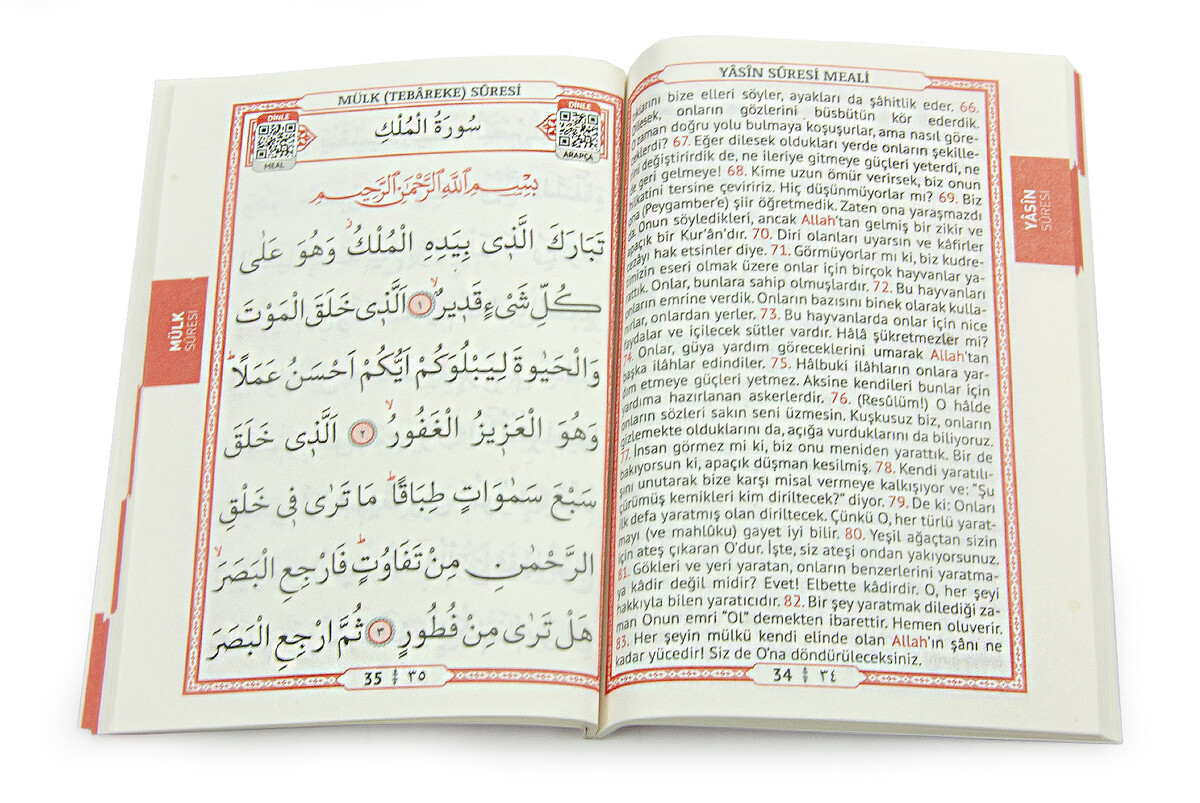 YÂSÎN SÛRESİ MEALİ
klarını bize elleri söyler, ayakları da şâhitlik eder. 66.
dilesek, onların gözlerini büsbütün kör ederdik.
zaman doğru yolu bulmaya koşuşurlar, ama nasıl göre-
ceklerdi? 67. Eğer dilesek oldukları yerde onların şekille-
rini değiştirirdik de, ne ileriye gitmeye güçleri yeterdi, ne
de geri gelmeye! 68. Kime uzun ömür verirsek, biz onun
hilkatini tersine çeviririz. Hiç düşünmüyorlar mı? 69. Biz
ona (Peygamber'e) şiir öğretmedik. Zaten ona yaraşmazdı
da. Onun söyledikleri, ancak Allah'tan gelmiş bir zikir ve
apaçık bir Kur'ân'dır. 70. Diri olanları uyarsın ve kâfirler
cezâyı hak etsinler diye. 71. Görmüyorlar mı ki, biz kudre-
timizin eseri olmak üzere onlar için birçok hayvanlar ya-
rattık. Onlar, bunlara sahip olmuşlardır. 72. Bu hayvanları
onların emrine verdik. Onların bazısını binek olarak kulla-
nırlar, onlardan yerler. 73. Bu hayvanlarda onlar için nice
faydalar ve içilecek sütler vardır. Hâlâ şükretmezler mi?
74. Onlar, güya yardım göreceklerini umarak Allah'tan
başka ilâhlar edindiler. 75. Hâlbuki ilâhların onlara yar-
dım etmeye güçleri yetmez. Aksine kendileri bunlar için
yardıma hazırlanan askerlerdir. 76. (Resûlüm!) O hâlde
onların sözleri sakın seni üzmesin. Kuşkusuz biz, onların
gizlemekte olduklarını da, açığa vurduklarını da biliyoruz.
77. İnsan görmez mi ki, biz onu meniden yarattık. Bir de
bakıyorsun ki, apaçık düşman kesilmiş. 78. Kendi yaratılı-
şını unutarak bize karşı misal vermeye kalkışıyor ve: "Şu
çürümüş kemikleri kim diriltecek?" diyor. 79. De ki: Onları
ilk defa yaratmış olan diriltecek. Çünkü O, her türlü yarat-
mayı (ve mahlûku) gayet iyi bilir. 80. Yeşil ağaçtan sizin
için ateş çıkaran O'dur. İşte, siz ateşi ondan yakıyorsunuz.
81. Gökleri ve yeri yaratan, onların benzerlerini yaratma-
ya kâdir değil midir? Evet! Elbette kâdirdir. O, her şeyi
hakkıyla bilen yaratıcıdır. 82. Bir şey yaratmak dilediği za-
man Onun emri "Ol" demekten ibarettir. Hemen oluverir.
83. Her şeyin mülkü kendi elinde olan Allah'ın şânı ne
kadar yücedir! Siz de O'na döndürüleceksiniz.
34 ٣٤
YÂSÎN
SÛRESİ
MÜLK (TEBÂREKE) SÛRESİ
DİNLE
MEAL
سُورَةُ الْمُلْكِ
DİNLE
ARAPÇA
بِسْمِ اللَّهِ الرَّحْمٰنِ الرَّحِيمِ
تَبَارَكَ الَّذٖى بِيَدِهِ الْمُلْكُۘ وَهُوَ عَلٰى
كُلِّ شَىْءٍ قَدٖيرٌۙ ١ اَلَّذٖى خَلَقَ الْمَوْتَ
وَالْحَيٰوةَ لِيَبْلُوَكُمْ اَيُّكُمْ اَحْسَنُ عَمَلًاؕ
وَهُوَ الْعَزٖيزُ الْغَفُورُۙ ٢ اَلَّذٖى خَلَقَ
سَبْعَ سَمٰوَاتٍ طِبَاقًاؕ مَا تَرٰى فٖى خَلْقِ
الرَّحْمٰنِ مِنْ تَفَاوُتٍؕ فَارْجِعِ الْبَصَرَۙ
هَلْ تَرٰى مِنْ فُطُورٍ ٣ ثُمَّ ارْجِعِ الْبَصَرَ
35 ٣٥
MÜLK
SÛRESİ